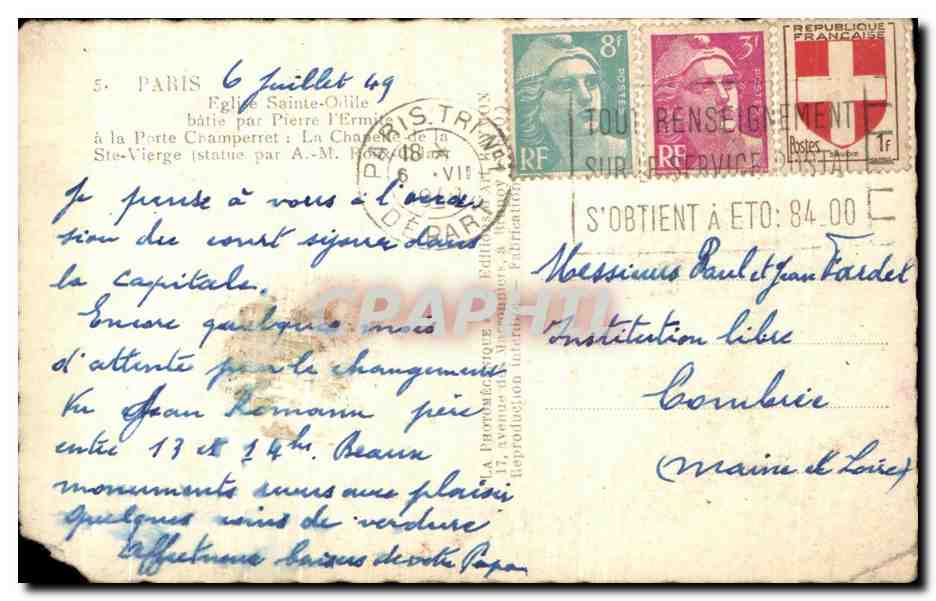 5. PARIS
6 Juillet 49
Eglise Sainte-Odile
bâtie par Pierre l'Ermite
à la Porte Champerret : La Chapelle de la
Ste-Vierge (statue par A.-M.
Je pense à vous à l'occa
sion du court séjour dans
la capitale.
Encore quelques mois
d'attente pour le changement
Vu Jean Romann père
entre 13 et 14 hs. Beaux
monuments revus avec plaisir
quelques coins de verdure
Affectueux baisers de votre Papa
PARIS.TRI No 1
18
6 .VII
DÉPART
LA PHOTOMÉCANIQUE Editions D'ART
17, avenue des Marronniers, à
Reproduction interdite. — Fabrication
8F
POSTES
RF
3F
POSTES
RF
REPUBLIQUE
FRANÇAISE
Postes
1F
TOUT RENSEIGNEMENT
SUR LE SERVICE POSTAL
S'OBTIENT À ETO: 84_00
Messieurs Paul et Jean Tardet
Institution libre
Combrée
(Maine et Loire)
CPAPHIL